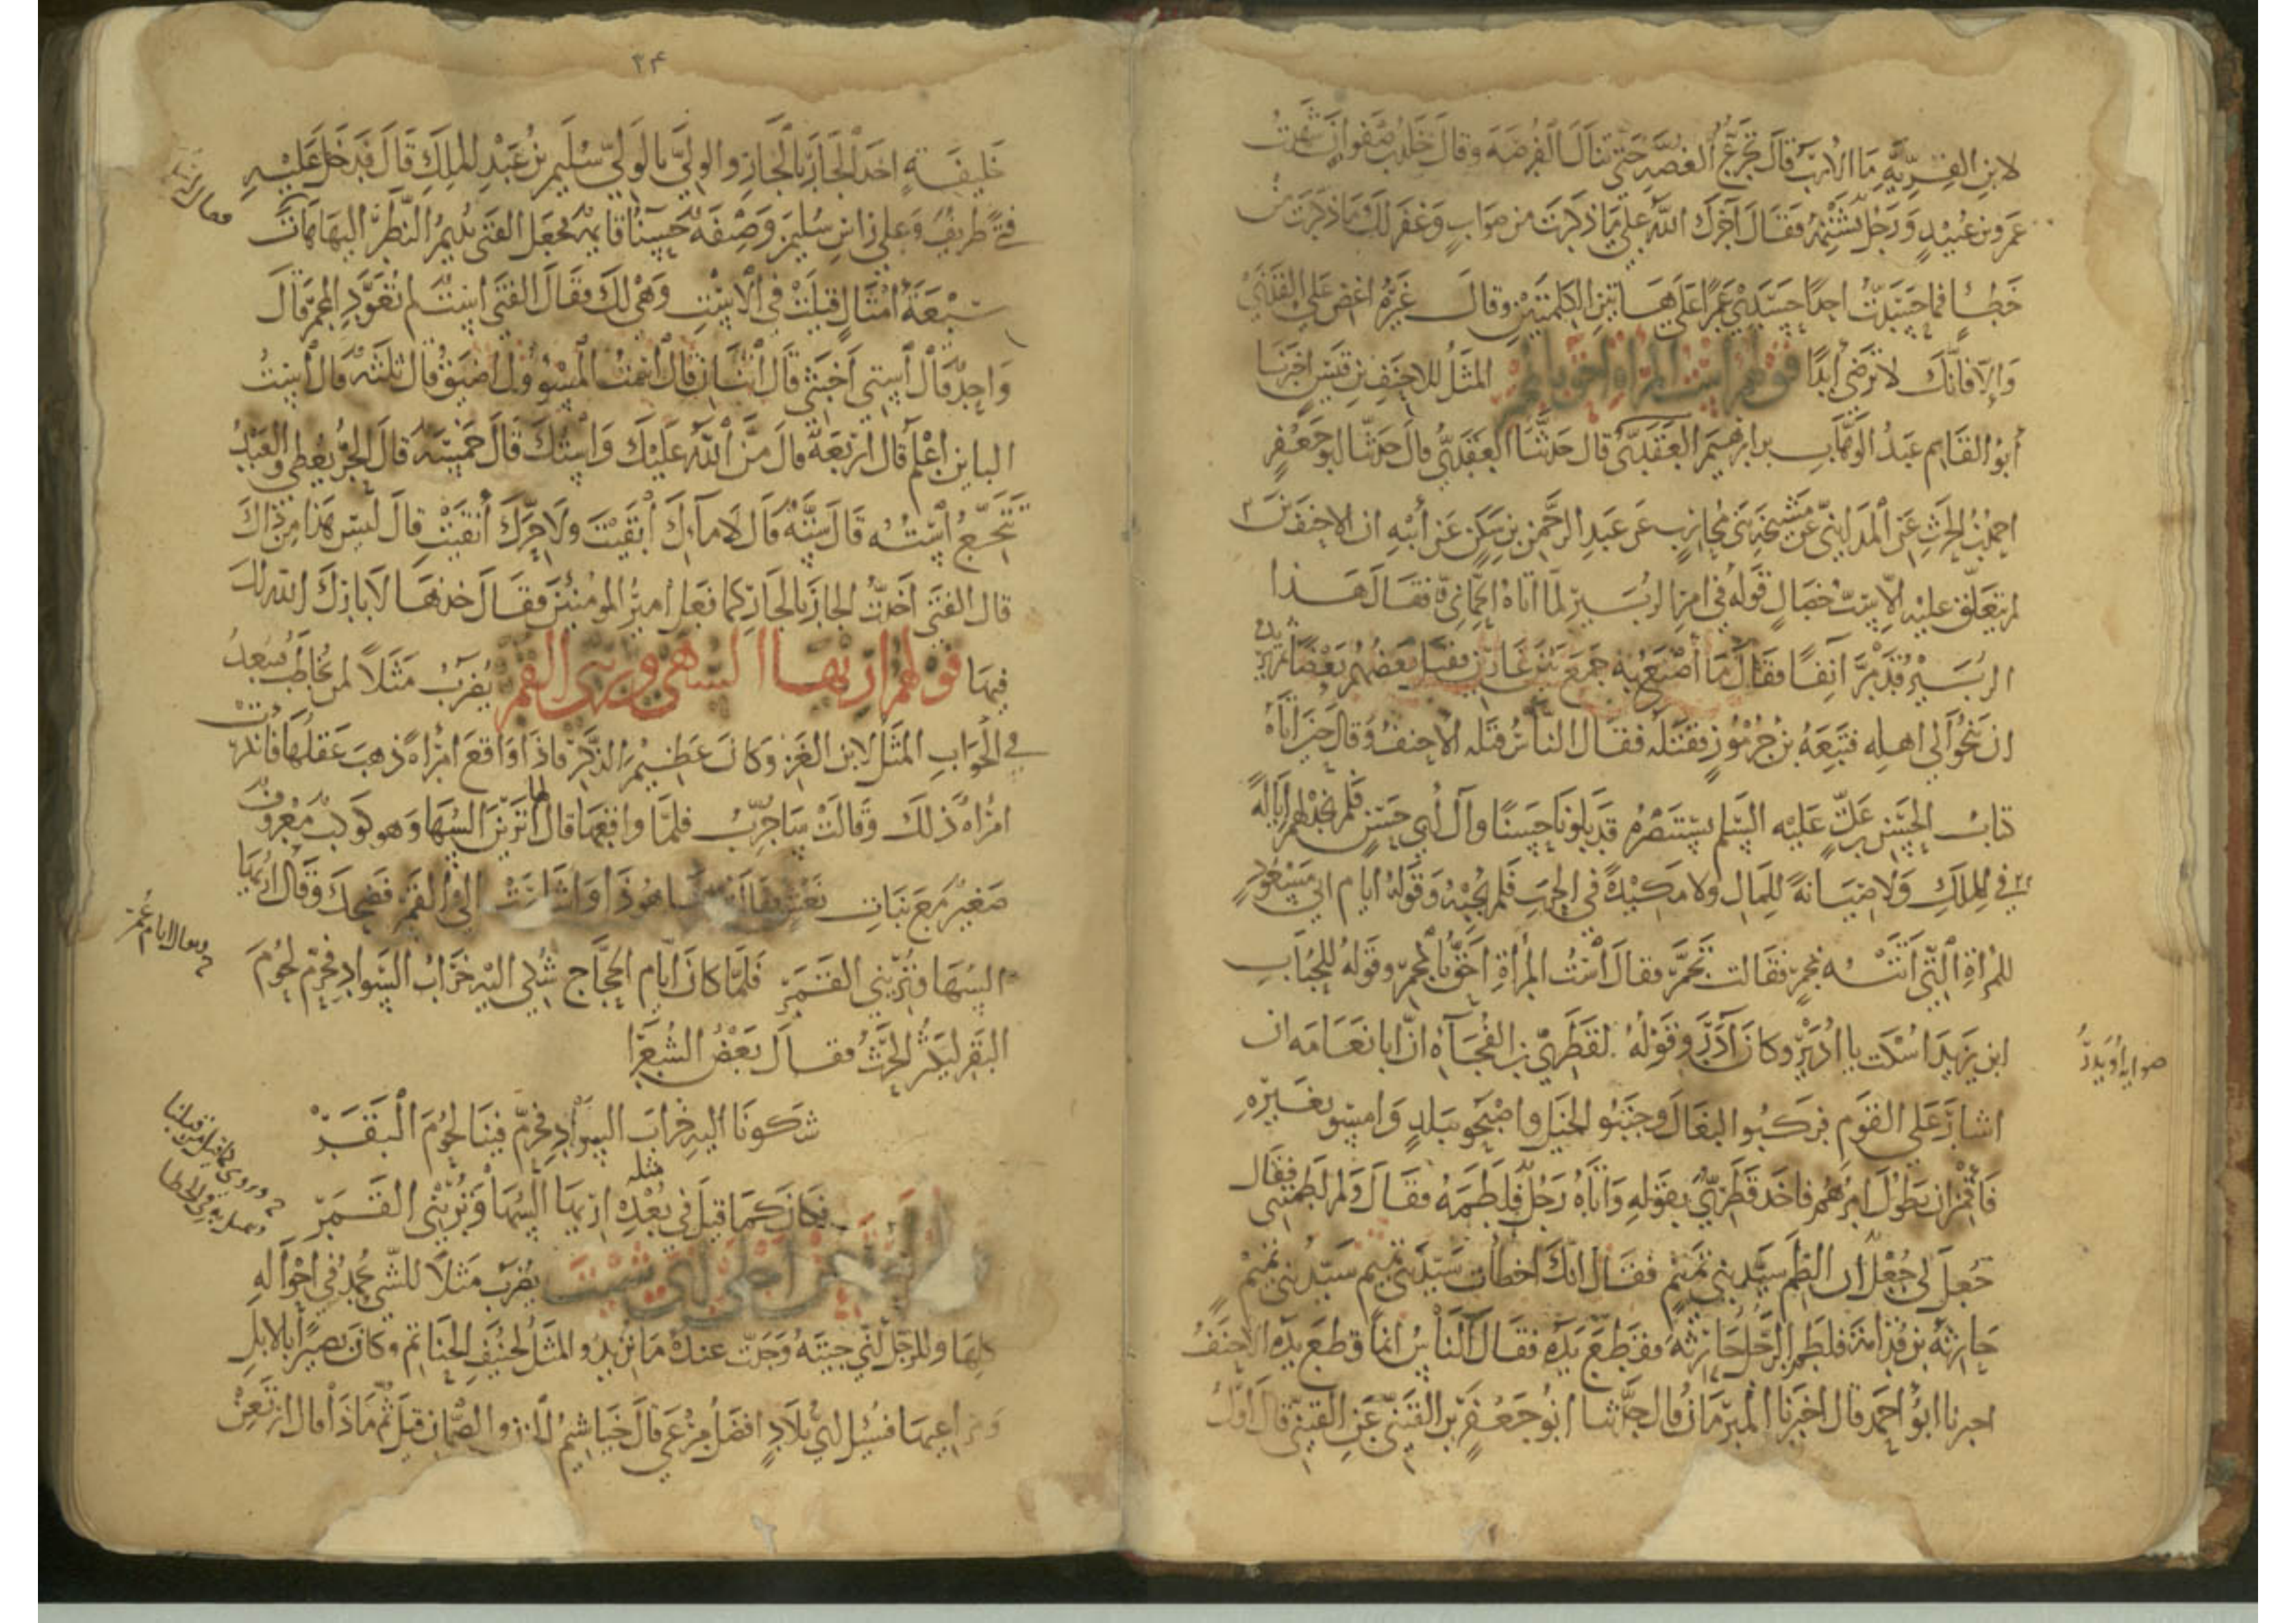 لابن القرية ما الارب قال تجرع الغصه حتى تنال الفرصه وقال خلد بن صفوان شهدت
عمرو بن عبيد ورجل يشتمه فقال آجرك الله على ما ذكرت من صواب وغفر لك ما ذكرت من
خطإ فما حسدت احدا حسدي عمرا على هاتين الكلمتين وقال غيره اغض على القذى
والا فانك لا ترضى ابدا قولهم است المرأة احق بالمجمر المثل للاحنف بن قيس اخبرنا
ابو القاسم عبد الوهاب بن ابرهيم العقدى قال حدثنا العقدى قال حدثنا ابو جعفر
احمد بن الحرث عن المدايني عن مشيخة بني محارب عن عبد الرحمن بن سكن عن أبيه ان الاحنف بن
لم يتعلق عليه الا ست خصال قوله في امر الزبير لما اتاه الحماني فقال هذا
الزبير قد مر آنفا فقال ما أصنع به جمع بين غارين فقتل بعضهم بعضا ثم يريد
ان ينجو الى اهله فتبعه بن جرموز فقتله فقال الناس قتله الاحنف وقال حين اتاه
كتاب الحسن بن علي عليه السلم يستنصره قد بلونا حسنا وآل أبي حسن فلم نجد لهم ايالة
في الملك ولا صيانة للمال ولا مكيدة في الحرب فلم يجبه وقوله ايام ابي مسعود
للمرأة التي اتته بمجمر فقالت تجمر فقال است المرأة احق بالمجمر وقوله للحباب
ابن يزيد اسكت يا ادير وكان آدر وقوله لقطري بن الفجاءه ان ابا نعامه ان
اشار على القوم فركبوا البغال وجنبوا الخيل واصبحو ببلد وامسو بغيره
فأقمن ان يطول امرهم فاخذ قطري بقوله واتاه رجل فلطمه فقال ولم لطمتني فقال
جعل لي جعل ان الطم سيد بني تميم فقال انك اخطات سيد بني تميم سيد بني تميم
حارثه بن قدامة فلطم الرجل حارثه فقطع يده فقال الناس انما قطع يده الاحنف
اخبرنا ابو احمد قال اخبرنا المبرمان قال حدثنا ابو جعفر بن القتبي عن القتبي قال اول
صوابه أويدر
٢٤
خليفة اخذ الجار بالجار والولي بالولي سليمن بن عبد الملك قال فدخل عليه
فتى ظريف وعلى راس سليمن وصيفة حسنا قايمه فجعل الفتى يديم النظر اليها فقال
سبعة أمثال قيلت في الاست وهي لك فقال الفتى است لم تعود المجمر قال
واحد قال استي اخبثي قال اثنان قال است المسؤول اضيق قال ثلثه قال است
الباين اعلم قال اربعة قال من الله عليك واستك قال خمسه قال الحر يعطي والعبد
تيجع استه قال سته قال لا ماءك ابقيت ولا حرك أنقيت قال ليس هذا من ذاك
قال الفتى اخذت الجار بالجار كما فعل امير المومنين فقال خذها لا بارك الله لك
فيها قولهم اريها السهى وتريني القمر يضرب مثلا لمن يخاطب فيبعد
في الجواب المثل لابن الغز وكان عظيم الذكر فاذا واقع امرأه ذهب عقلها فانكرت
امرأه ذلك وقالت ساجرب فلما واقعها قال لها اترين السها وهو كوكب معروف
صغير مع بنات نعش فقالت ها هو ذا واشارت الى القمر فضحك وقال اريها
السها وتريني القمر فلما كان ايام الحجاج شكي اليه خراب السواد فحرم لحوم
البقر ليكثر الحرث فقال بعض الشعرا
شكونا اليه خراب السواد فحرم فينا لحوم البقر
فكان كما قيل في بعده اريها السها وتريني القمر
مثله
يضرب مثلا للشي يحمد في احواله
كلها وللرجل اني جيته وجدت عنده ما تريد والمثل لحنيف الحناتم وكان بصيرا بالابل
ومراعيها فسئل اي بلاد افضل مرعى قال خياشيم الحزن والصمان قيل ثم ماذا قال